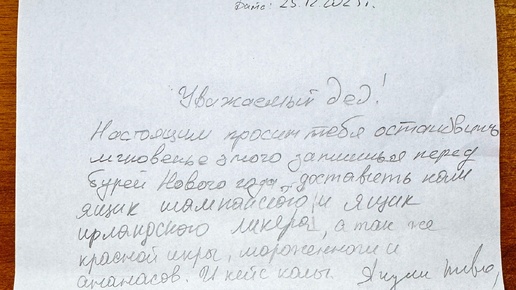 Дата: 25.12.2023г.
Уважаемый дед!
Настоящим просим тебя остановить
мгновенье этого затишья перед
бурей Нового года, доставить нам
ящик шампанского и ящик
ирландского ликёра, а так же
красной икры, мороженного и
ананасов. И кейс колы.